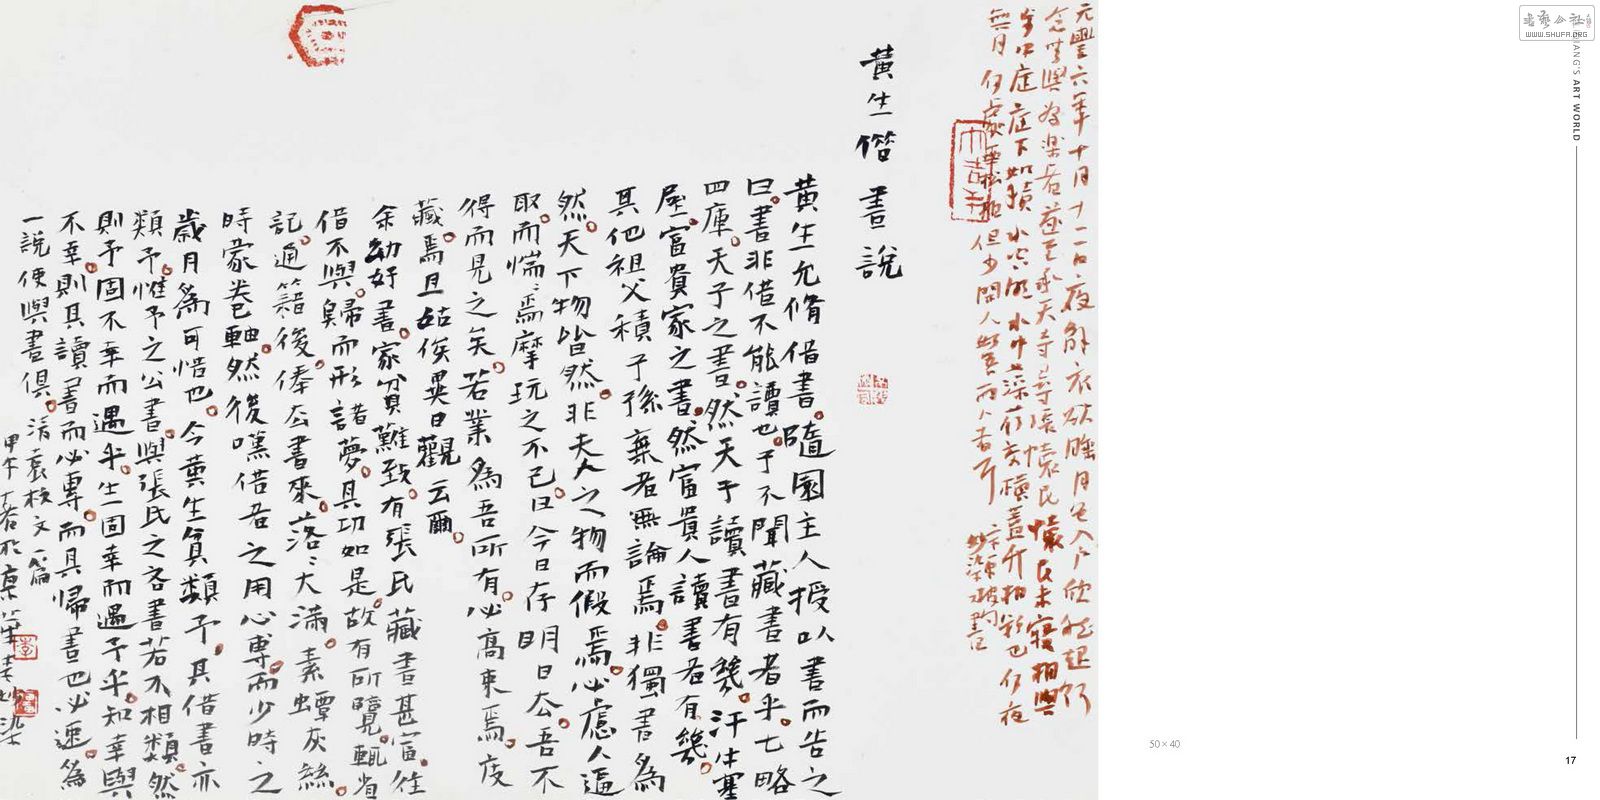 元豐六年十月十二日夜解衣欲睡月色入户欣然起行
念無與為樂者遂至承天寺尋張懷民懷民未寢相與
步中庭庭下如積水空明水中藻荇交橫蓋竹柏影也何夜
無月何處無松柏但少閒人如吾兩人者耳
黃生借書說
黃生允脩借書隨園主人授以書而告之
曰書非借不能讀也子不聞藏書者乎七略
四庫天子之書然天子讀書有幾汗牛塞
屋富貴家之書然富貴人讀書者有幾
其他祖父積子孫棄者無論焉非獨書為
然天下物皆然非夫人之物而假焉必慮人逼
取而惴〻焉摩玩之不已曰今日存明日去吾不
得而見之矣若業為吾所有必高束焉庋
藏焉且姑俟異日觀云爾
余幼好書家貧難致有張氏藏書甚富往
借不與歸而形諸夢其切如是故有所覽輒省
記通籍後俸去書來落〻大滿素蟫灰絲
時蒙卷軸然後嘆借者之用心專而少時之
歲月為可惜也今黃生貧類予其借書亦
類予惟予之公書與張氏之吝書若不相類然
則予固不幸而遇乎生固幸而遇予乎知幸與
不幸則其讀書而必專而其歸書也必速為
一說使與書俱清袁枚文一篇
甲午
50×40
WWW.SHUFA.ORG
ART WORLD
17